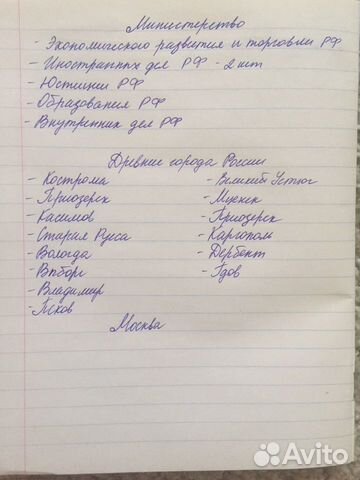 Министерство
- Экономического развития и торговли РФ
- Иностранных дел РФ - 2 шт
- Юстиции РФ
- Образования РФ
- Внутренних дел РФ
Древние города России
- Кострома
- Приозерск
- Касимов
- Старая Русса
- Вологда
- Выборг
- Владимир
- Псков
- Великий Устюг
- Мценск
- Приозерск
- Каргополь
- Дербент
- Гдов
Москва
Avito